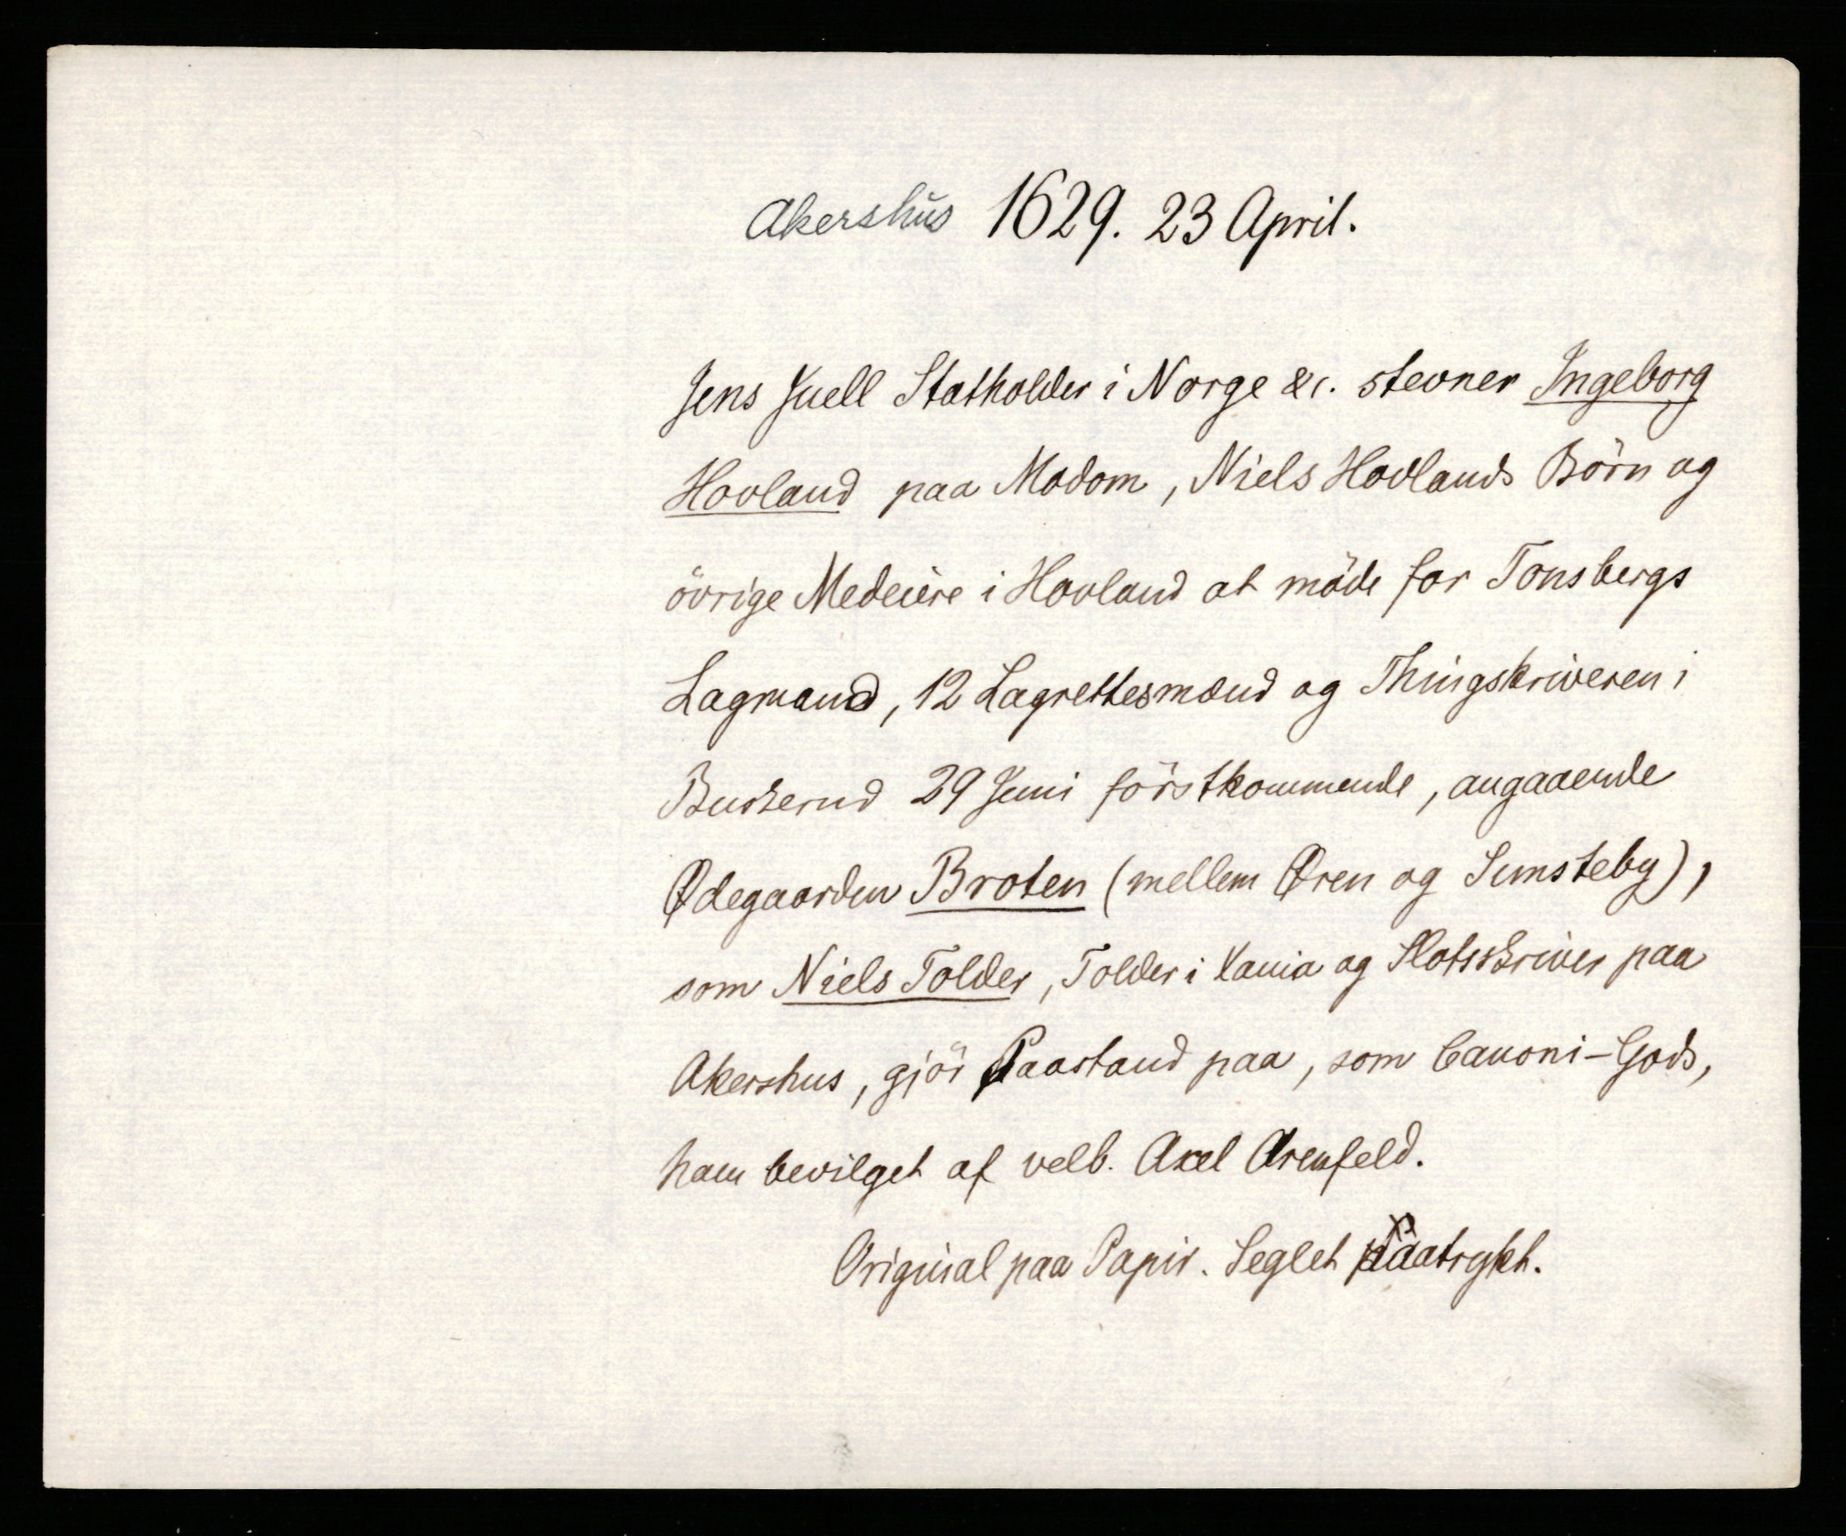 Akershus 1629. 23 April.
Jens Juell Statholder i Norge &c. stevner Ingeborg
Hovland paa Modom, Niels Hovlands Börn og
övrige Medeiere i Hovland at möde for Tonsbergs
Lagmand, 12 Lagrettesmænd og Thingskriveren i
Buskerud 29 Juni förstkommende, angaaende
Ødegaarden Broten (mellem Øren og Semsteby),
som Niels Tolder, Tolder i Xania og Slotsskriver paa
Akershus, gjör Paastand paa, som Canoni-Gods,
ham bevilget af velb. Axel Arenfeld.
Original paa Papir. Seglet paatrykt.